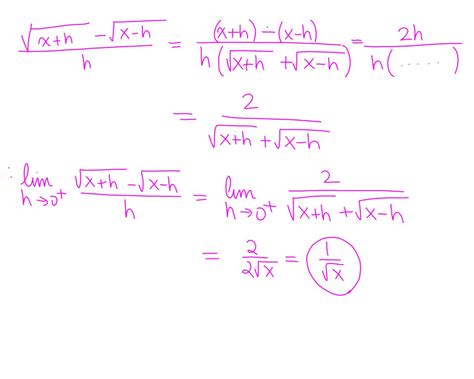 (√(x+h) - √(x-h))/h = ((x+h) ÷ (x-h))/(h(√(x+h) + √(x-h))) = 2h/(h(.....))
= 2/(√(x+h) + √(x-h))
: lim h→0⁺ (√(x+h) - √(x-h))/h = lim h→0⁺ 2/(√(x+h) + √(x-h))
= 2/(2√x) = 1/√x